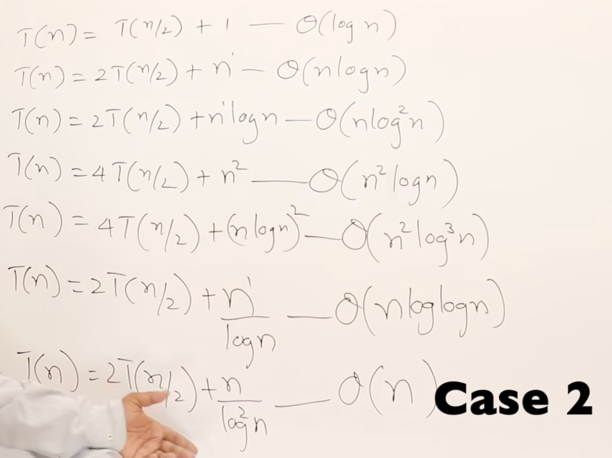 T(n) = T(n/2) + 1 — O(log n)
T(n) = 2T(n/2) + n¹ — O(n log n)
T(n) = 2T(n/2) + n¹ log n — O(n log² n)
T(n) = 4T(n/2) + n² — O(n² log n)
T(n) = 4T(n/2) + (n log n)² — O(n² log³ n)
T(n) = 2T(n/2) + n¹/log n — O(n log log n)
T(n) = 2T(n/2) + n/log² n — O(n)
Case 2